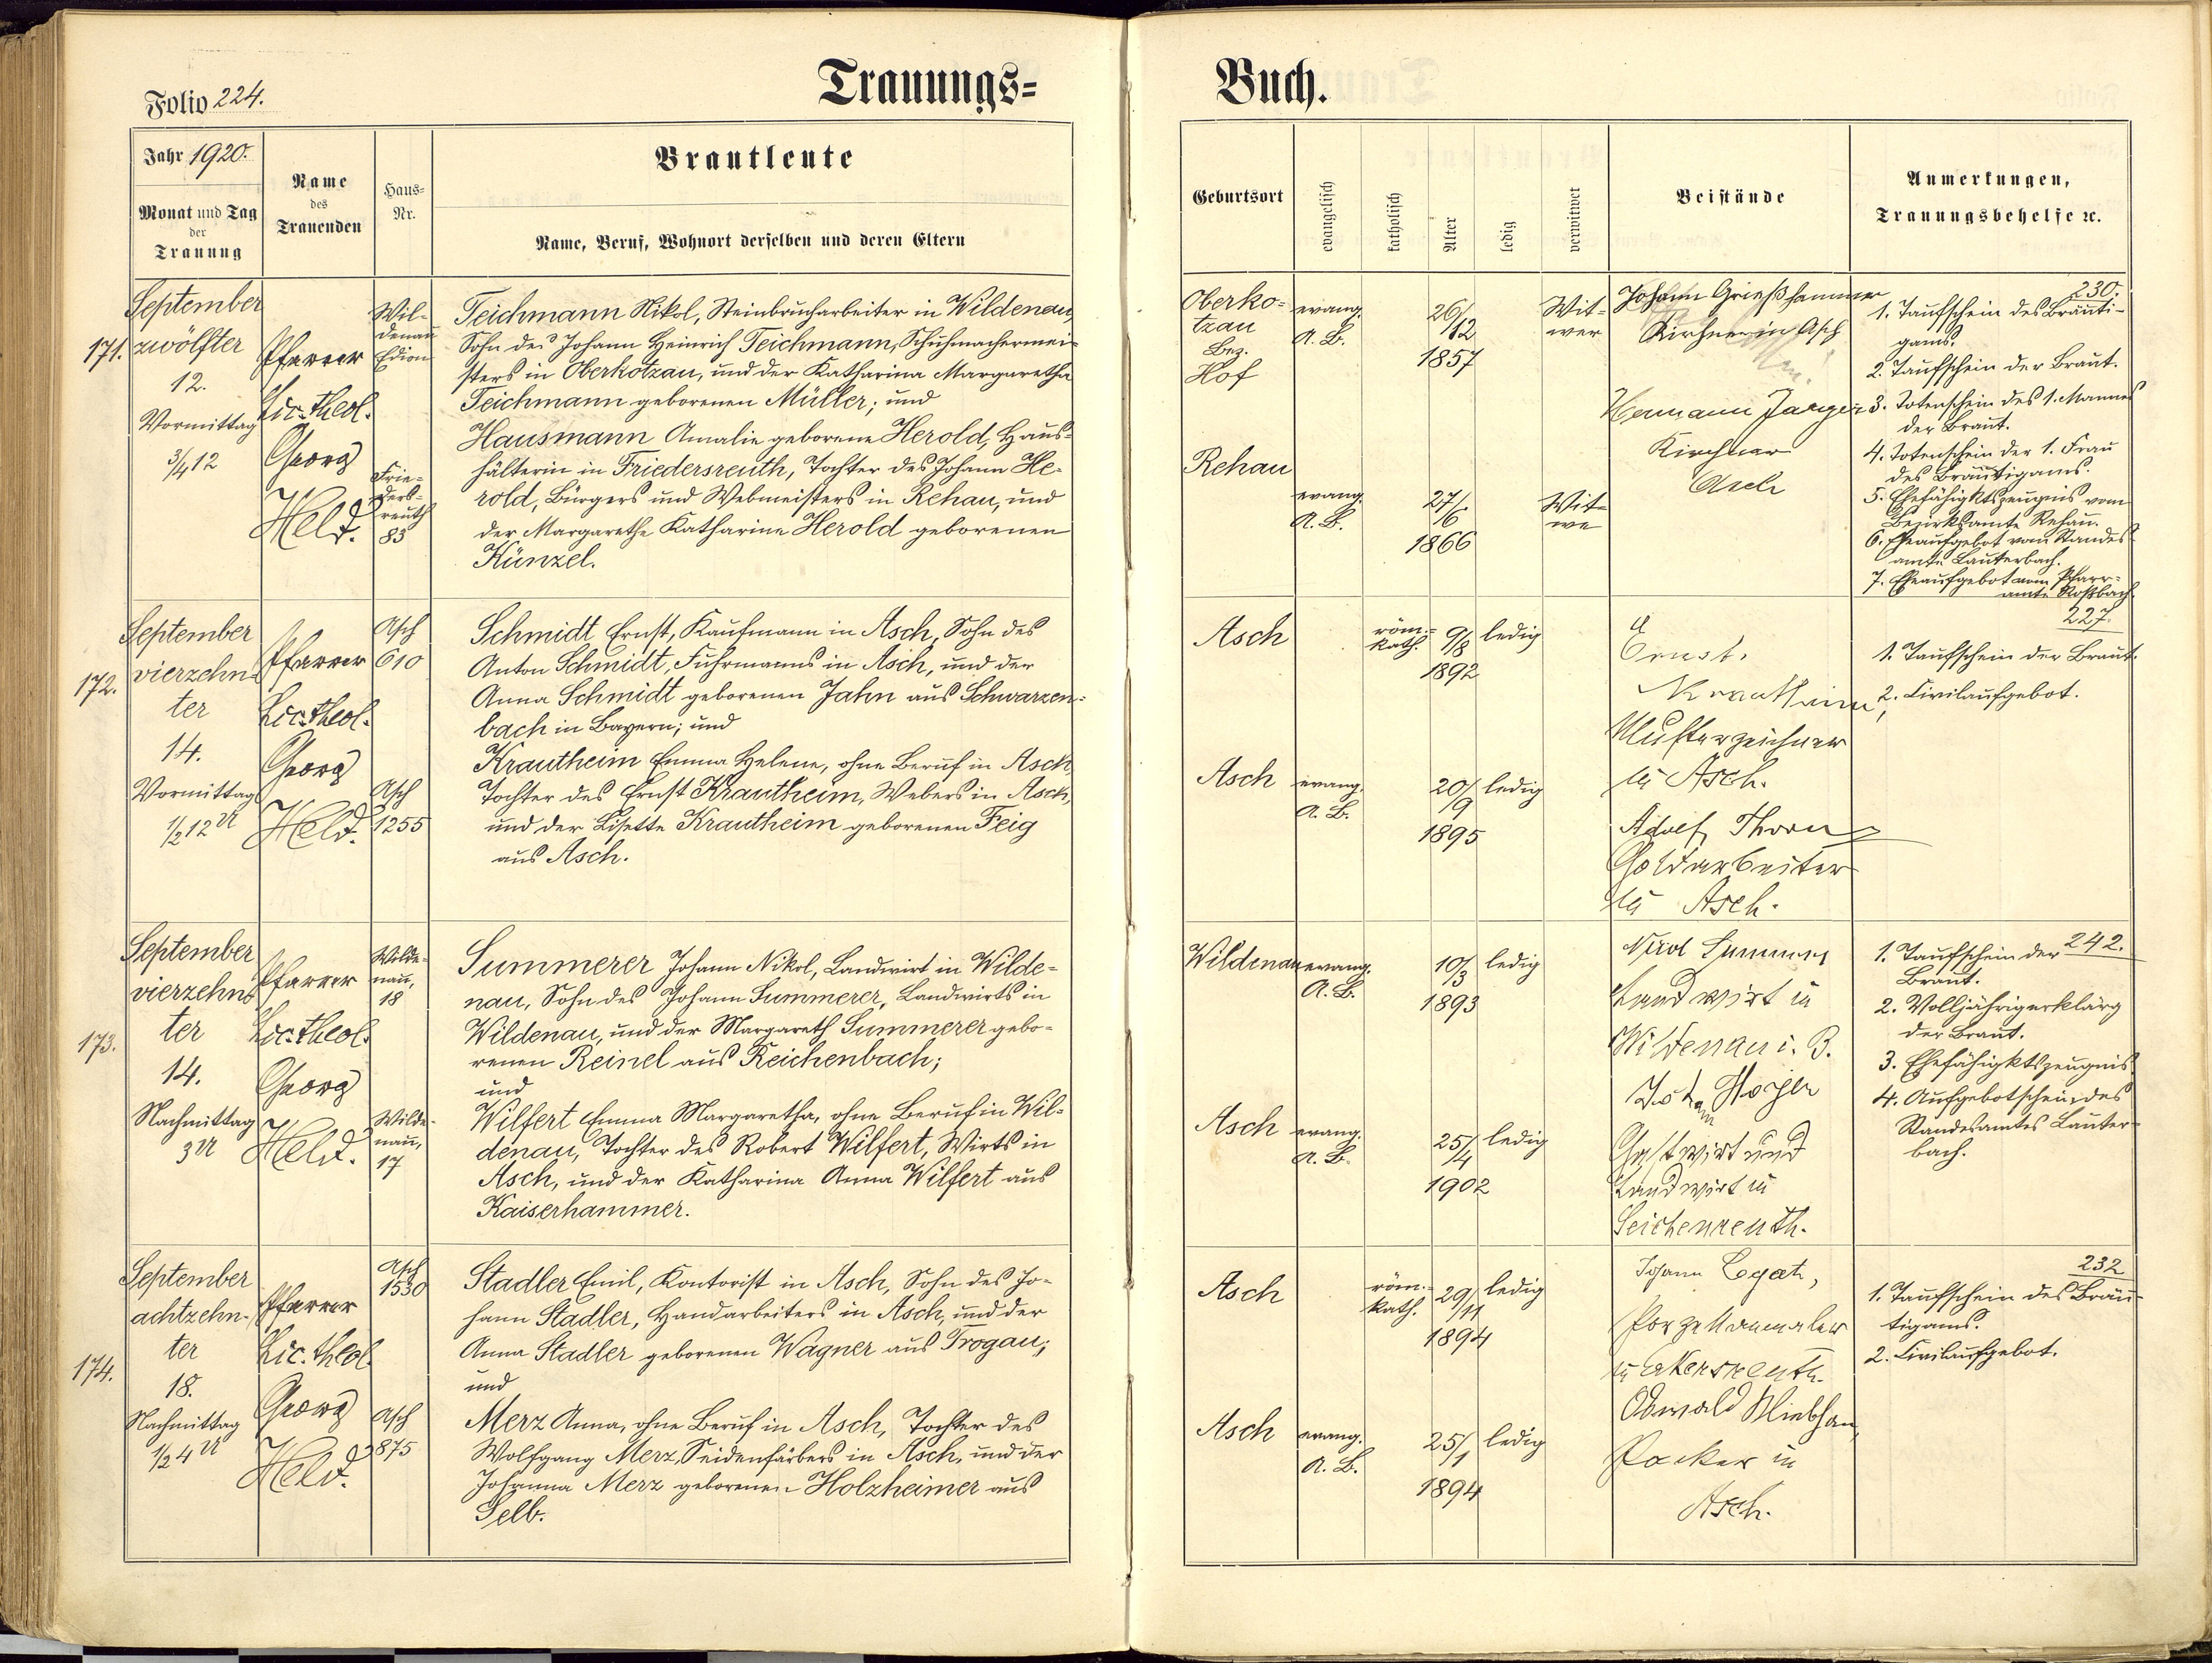 Trauungs=
Buch.
Folio 224.
Jahr 1920.
Monat und Tag
der
Trauung
Name
des
Trauenden
Haus=
Nr.
Brautleute
Name, Beruf, Wohnort derselben und deren Eltern
Geburtsort
evangelisch
katholisch
Alter
ledig
verwitwet
Beistände
Anmerkungen,
Trauungsbehelfe ꝛc.
171.
September
zwölfter
12.
Vormittag
3/4 12
Pfarrer
Lic. theol.
Georg
Held.
Wil-
denau
Frie-
ders-
reuth
83
Teichmann Nikol, Steinbrucharbeiter in Wildenau,
Sohn des Johann Heinrich Teichmann, Schuhmachermei-
sters in Oberkotzau, und der Katharina Margaretha
Teichmann geborenen Müller; und
Hausmann Amalie geborene Herold, Haus-
hälterin in Friedersreuth, Tochter des Johann He-
rold, Bürgers und Webmeisters in Rehau, und
der Margarethe Katharine Herold geborenen
Künzel.
Oberko-
tzau
Bez.
Hof
evang.
A. B.
26/
12
1857
Wit-
wer
Rehau
evang.
A. B.
27/
6
1866
Wit-
we
Johann Grießhammer
Kirchner in Asch
Hermann Jaeger
Kirchner
Asch
230.
1. Taufschein des Bräuti-
gams.
2. Taufschein der Braut.
3. Totenschein des 1. Mannes
der Braut.
4. Totenschein der 1. Frau
des Bräutigams.
5. Ehefähigktszeugnis vom
Bezirksamte Rehau.
6. Eheaufgebot vom Standes-
amte Lauterbach.
7. Eheaufgebot vom Pfarr-
amte Roßbach.
172.
September
vierzehn-
ter
14.
Vormittag
1/2 12 U
Pfarrer
Lic. theol.
Georg
Held.
Asch
610
Asch
1255
Schmidt Ernst, Kaufmann in Asch, Sohn des
Anton Schmidt, Fuhrmanns in Asch, und der
Anna Schmidt geborenen Jahn aus Schwarzen-
bach in Bayern; und
Krautheim Emma Helene, ohne Beruf in Asch,
Tochter des Ernst Krautheim, Webers in Asch,
und der Lisette Krautheim geborenen Feig
aus Asch.
Asch
röm.-
kath.
9/8
1892
ledig
Asch
evang.
A. B.
20/
9
1895
ledig
Ernst
Krautheim,
Musterzeichner
in Asch.
Adolf Thorn
Goldarbeiter
in Asch.
227.
1. Taufschein der Braut.
2. Civilaufgebot.
173.
September
vierzehn-
ter
14.
Nachmittag
3 U
Pfarrer
Lic. theol.
Georg
Held.
Wilde-
nau,
18
Wilde-
nau,
17
Summerer Johann Nikol, Landwirt in Wilde-
nau, Sohn des Johann Summerer, Landwirts in
Wildenau, und der Margareth Summerer gebo-
renen Reinel aus Reichenbach;
und
Wilfert Emma Margaretha, ohne Beruf in Wil-
denau, Tochter des Robert Wilfert, Wirts in
Asch, und der Katharina Anna Wilfert aus
Kaiserhammer.
Wildenau
evang.
A. B.
10/
3
1893
ledig
Asch
evang.
A. B.
25/
4
1902
ledig
Nikol Summerer
Landwirt in
Wildenau i. B.
Gastwirt und
Landwirt in
Seichenreuth.
242.
1. Taufschein der
Braut.
2. Volljährigerklärg
der Braut.
3. Ehefähigktszeugnis.
4. Aufgebotschein des
Standesamtes Lauter-
bach.
174.
September
achtzehn-
ter
18.
Nachmittag
1/2 4 U
Pfarrer
Lic. theol.
Georg
Held.
Asch
1530
Asch
875
Stadler Emil, Kontorist in Asch, Sohn des Jo-
hann Stadler, Handarbeiters in Asch, und der
Anna Stadler geborenen Wagner aus Trogau;
und
Merz Anna, ohne Beruf in Asch, Tochter des
Wolfgang Merz, Seidenfärbers in Asch, und der
Johanna Merz geborenen Holzheimer aus
Selb.
Asch
röm.-
kath.
29/
11
1894
ledig
Asch
evang.
A. B.
25/
1
1894
ledig
Johann Legat,
Porzellanmaler
in
Oswald
Packer in
Asch.
232
1. Taufschein des Bräu-
tigams.
2. Civilaufgebot.